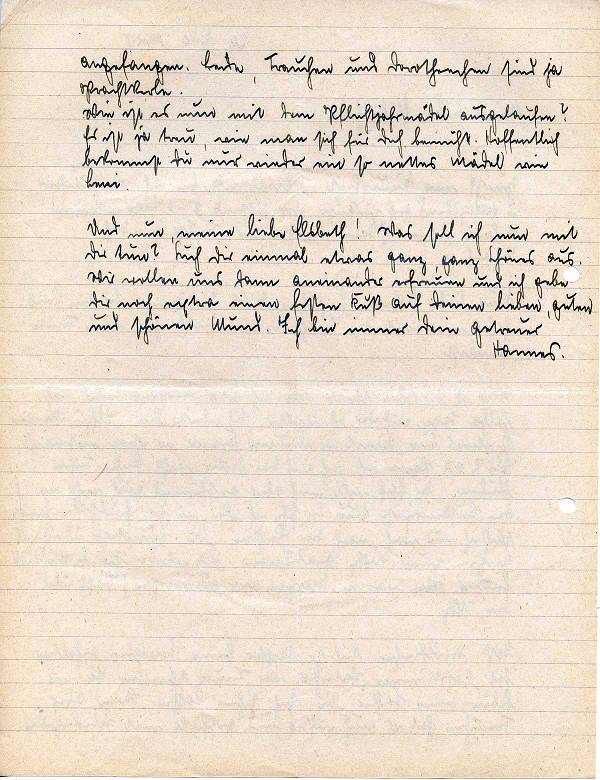 angefangen. Beide, Trauchen und Dorotheechen sind ja
Prachtkerle.
Wie ist es nun mit dem Pflichtjahrmädel ausgelaufen?
Es ist ja treu, wie man sich für Dich bemüht. Hoffentlich
bekommst Du nur wieder ein so nettes Mädel wie
Und nun, meine liebe Elsbeth! Was soll ich nun mit
Dir tun? Such Dir einmal etwas ganz, ganz Schönes aus.
Wir wollen uns dann aneinander erfreuen und ich gebe
Dir noch extra einen festen Kuß auf Deinen lieben, guten
und schönen Mund. Ich bin immer Dein getreuer
Hannes.